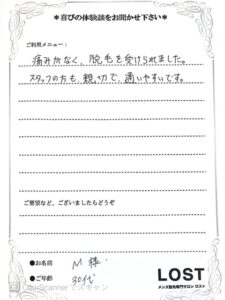 *喜びの体験談をお聞かせ下さい*
ご利用メニュー：
痛みがなく、脱毛を受けられました。
スタッフの方も、親切で、通いやすいです。
ご要望など、ございましたらどうぞ
●お名前 M 様
●ご年齢 30代
LOST
メンズ脱毛専門サロン ロスト
CamScanner でスキャン